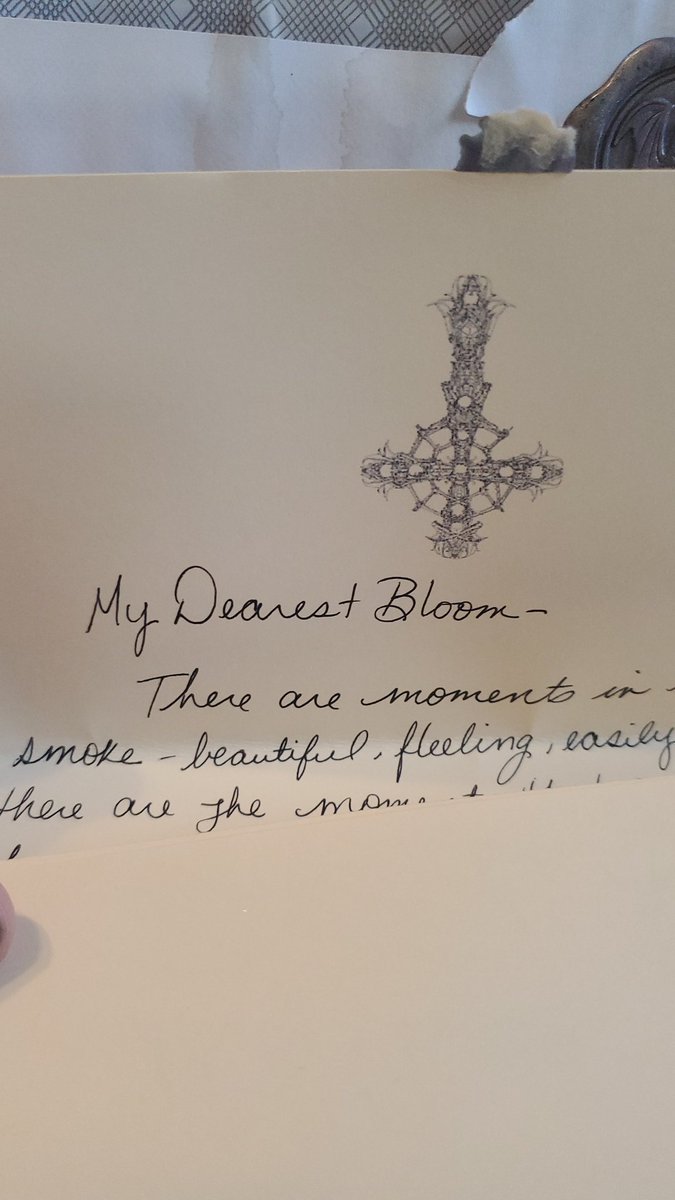 My Dearest Bloom –
There are moments in
smoke – beautiful, fleeting, easily
there are the